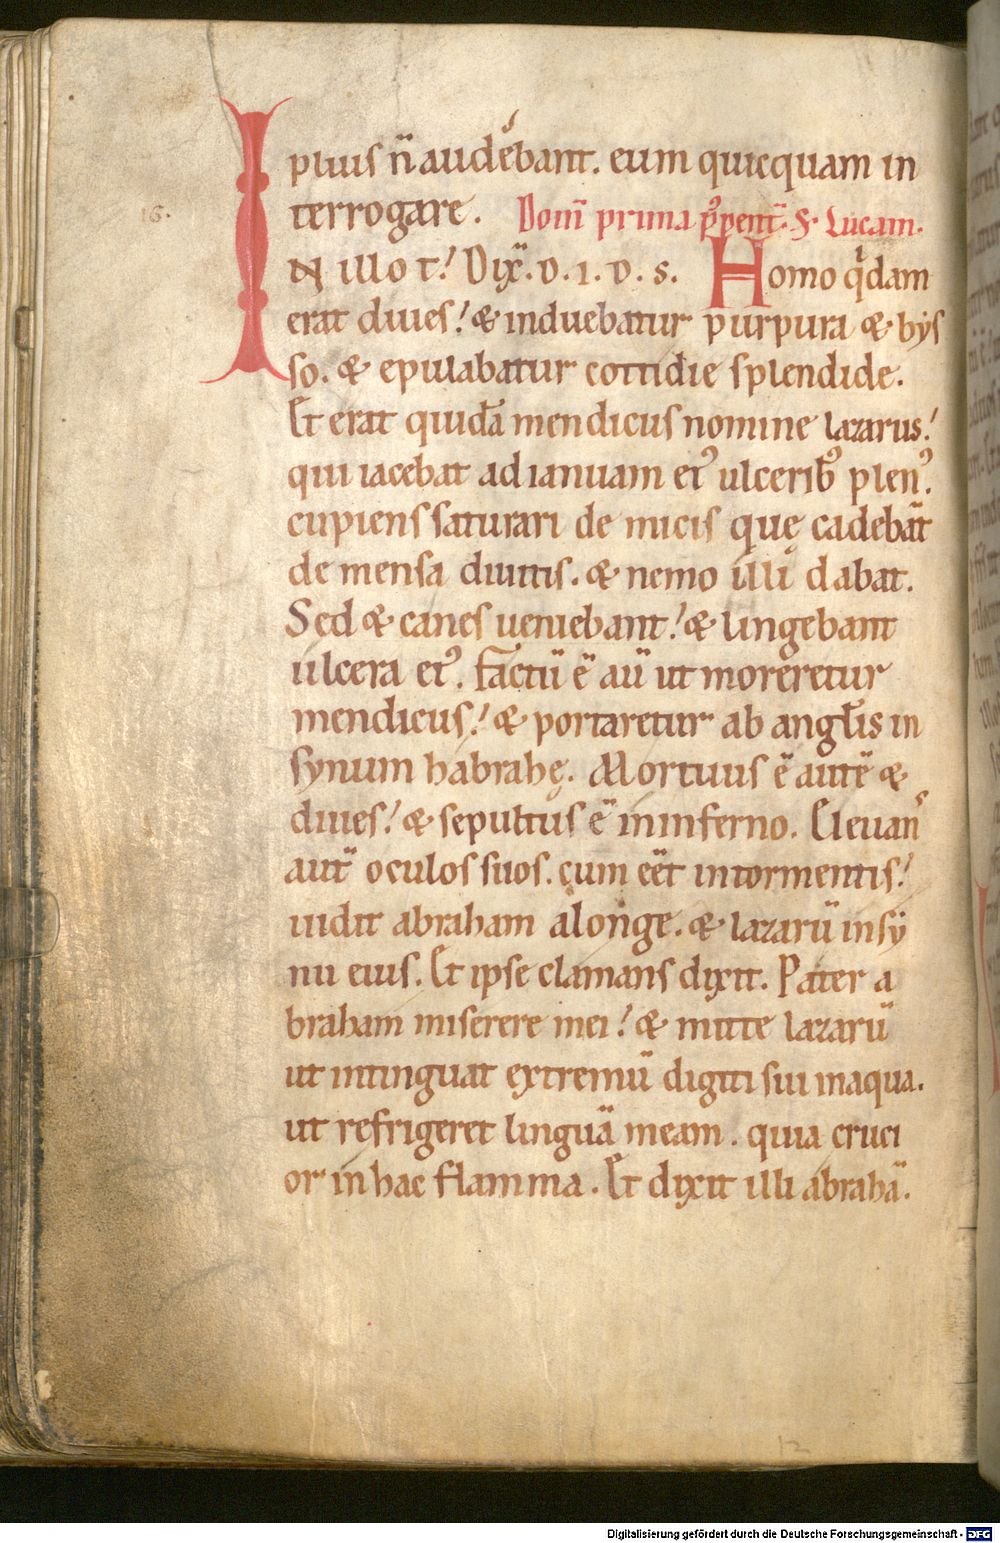 pluus n̄ audebant. eum quicquam in
terrogare. Domī prima p᷒ pent̄. S. Lucam.
16.
IN illo t̄. Dix̄. d. i. d. s. Homo qͥdam
erat diues. & induebatur purpura & bys
so. & epulabatur cottidie splendide.
Et erat quidā mendicus nomine lazarus.
qui iacebat ad ianuam eiꝰ ulceribꝰ plenꝰ.
cupiens saturari de micis quę cadebāt
de mensa diuitis. & nemo illi dabat.
Sed & canes ueniebant. & lingebant
ulcera eiꝰ. factū ē aū ut moreretur
mendicus. & portaretur ab angl̄is in
synum habrahę. Mortuus ē autē &
diues. & sepultus ē in inferno. Eleuans
aut̄ oculos suos. cum eēt in tormentis.
uidit abraham a longe. & lazarū in sy
nu eius. Et ipse clamans dixit. Pater a
braham miserere mei. & mitte lazarū
ut intinguat extremū digiti sui in aqua.
ut refrigeret linguā meam. quia cruci
or in hac flamma. Et dixit illi abrahā.
12
Digitalisierung gefördert durch die Deutsche Forschungsgemeinschaft - DFG